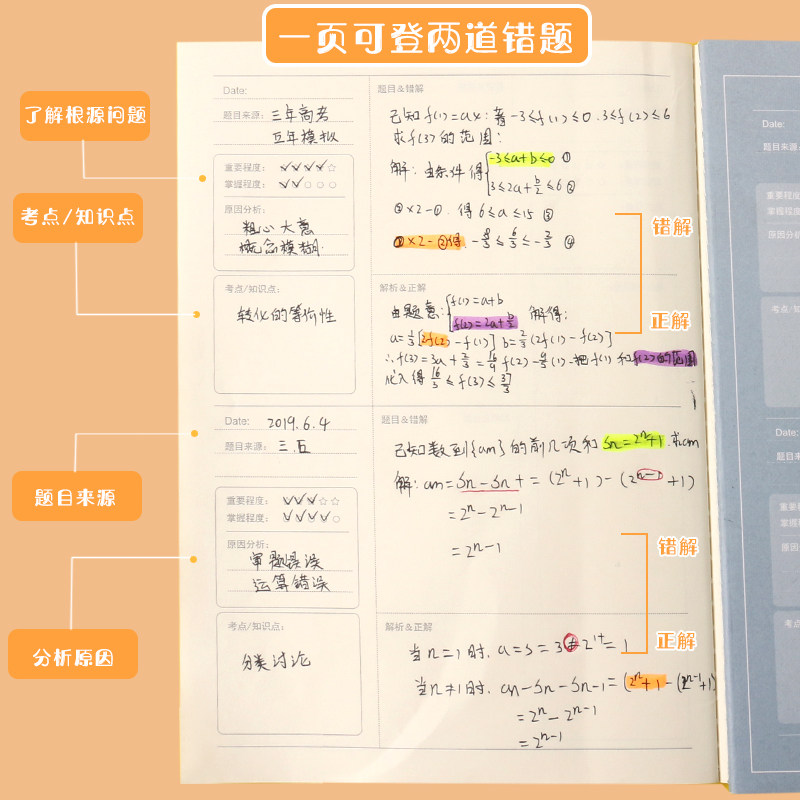 一页可登两道错题
了解根源问题
考点/知识点
题目来源
分析原因
Date:
题目来源: 三年高考
五年模拟
重要程度: ✓✓✓✓☆
掌握程度: ✓✓○○○
原因分析:
粗心大意
概念模糊.
考点/知识点:
转化的等价性
题目&错解
已知f(1)=ax: 若-3≤f(1)≤0.3≤f(2)≤6
求f(3)的范围:
解: 由条件得 -3≤a+b≤0 ①
3≤2a+b/2≤6 ②
②×2-①. 得6≤a≤15 ③
①×2-②得. ④
错解
解析&正解
由题意: f(1)=a+b
f(2)=2a+b/2 解得:
a=1/3[2f(2)-f(1)] b=2/3(2f(1)-f(2)]
把f(1)和f(2)的范围
代入得 16/3≤f(3)≤37/3
正解
Date: 2019.6.4
题目来源: 三.五
重要程度: ✓✓✓☆☆
掌握程度: ✓✓✓✓○
原因分析:
审题误误
运算错误
考点/知识点:
分类讨论
题目&错解
已知数列{am}的前几项和 Sn=2ⁿ+1.求am
解: am=Sn-Sn+=(2ⁿ+1)-(2ⁿ⁻¹+1)
=2ⁿ-2ⁿ⁻¹
=2ⁿ⁻¹
错解
解析&正解
当n=1时. a=s=3≠2¹⁺=1
当n≠1时. an-Sn-Sn-1=(2ⁿ+1-(2ⁿ⁻¹+1)
=2ⁿ-2ⁿ⁻¹
=2ⁿ⁻¹
正解
Date:
题目来源
重要程度
掌握程度
原因分析
考点/知
Date:
题目来源